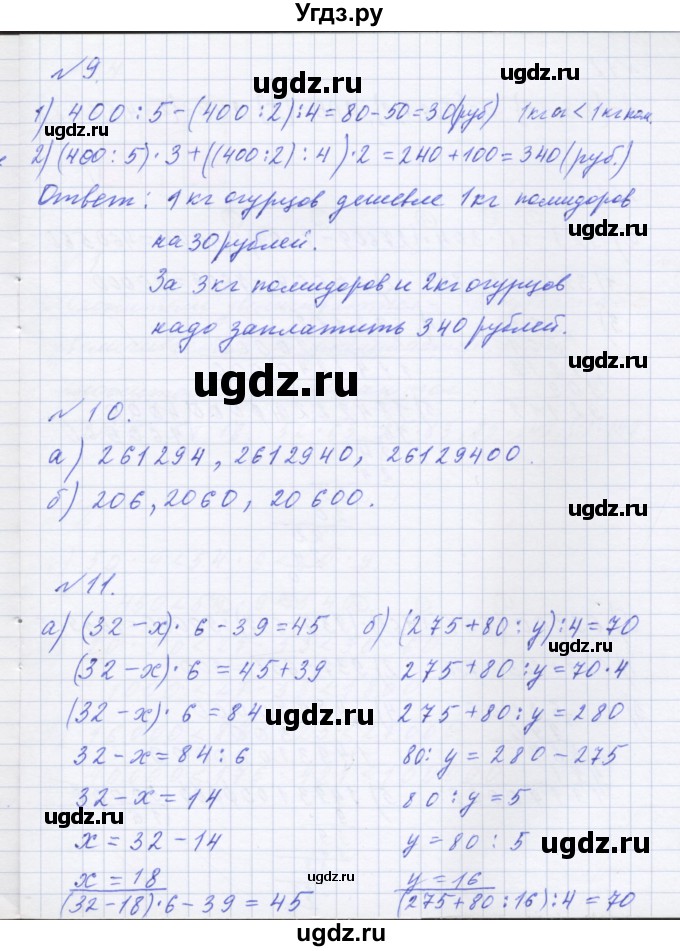 Угдз.ру
№9.
1) 400 : 5 - (400 : 2) : 4 = 80 - 50 = 30 (руб) 1кг ог < 1кг пом.
2) (400 : 5) · 3 + ((400 : 2) : 4) · 2 = 240 + 100 = 340 (руб.)
Ответ: 1 кг огурцов дешевле 1кг помидоров
на 30 рублей.
За 3кг помидоров и 2кг огурцов
надо заплатить 340 рублей.
№10.
а) 261294, 2612940, 26129400.
б) 206, 2060, 20 600.
№11.
а) (32 - x) · 6 - 39 = 45 б) (275 + 80 : y) : 4 = 70
(32 - x) · 6 = 45 + 39 275 + 80 : y = 70 · 4
(32 - x) · 6 = 84 275 + 80 : y = 280
32 - x = 84 : 6 80 : y = 280 - 275
32 - x = 14 80 : y = 5
x = 32 - 14 y = 80 : 5
x = 18 y = 16
(32 - 18) · 6 - 39 = 45 (275 + 80 : 16) : 4 = 70
ugdz.ru
ugdz.ru
ugdz.ru
ugdz.ru
ugdz.ru
ugdz.ru
ugdz.ru
ugdz.ru
ugdz.ru
ugdz.ru
ugdz.ru
ugdz.ru
ugdz.ru